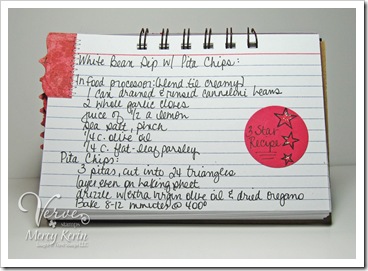 White Bean Dip w/ Pita Chips:
In food processor: (blend til creamy)
1 can drained & rinsed cannelini beans
2 whole garlic cloves
juice of 1/2 a lemon
sea salt, pinch
1/4 c. olive oil
1/4 c. flat-leaf parsley
Pita Chips:
3 pitas, cut into 24 triangles
layer even on baking sheet
drizzle w/ extra virgin olive oil & dried oregano
Bake 8-12 minutes @ 400°
3 Star
Recipe
Verve
stamps
Mercy Kerin